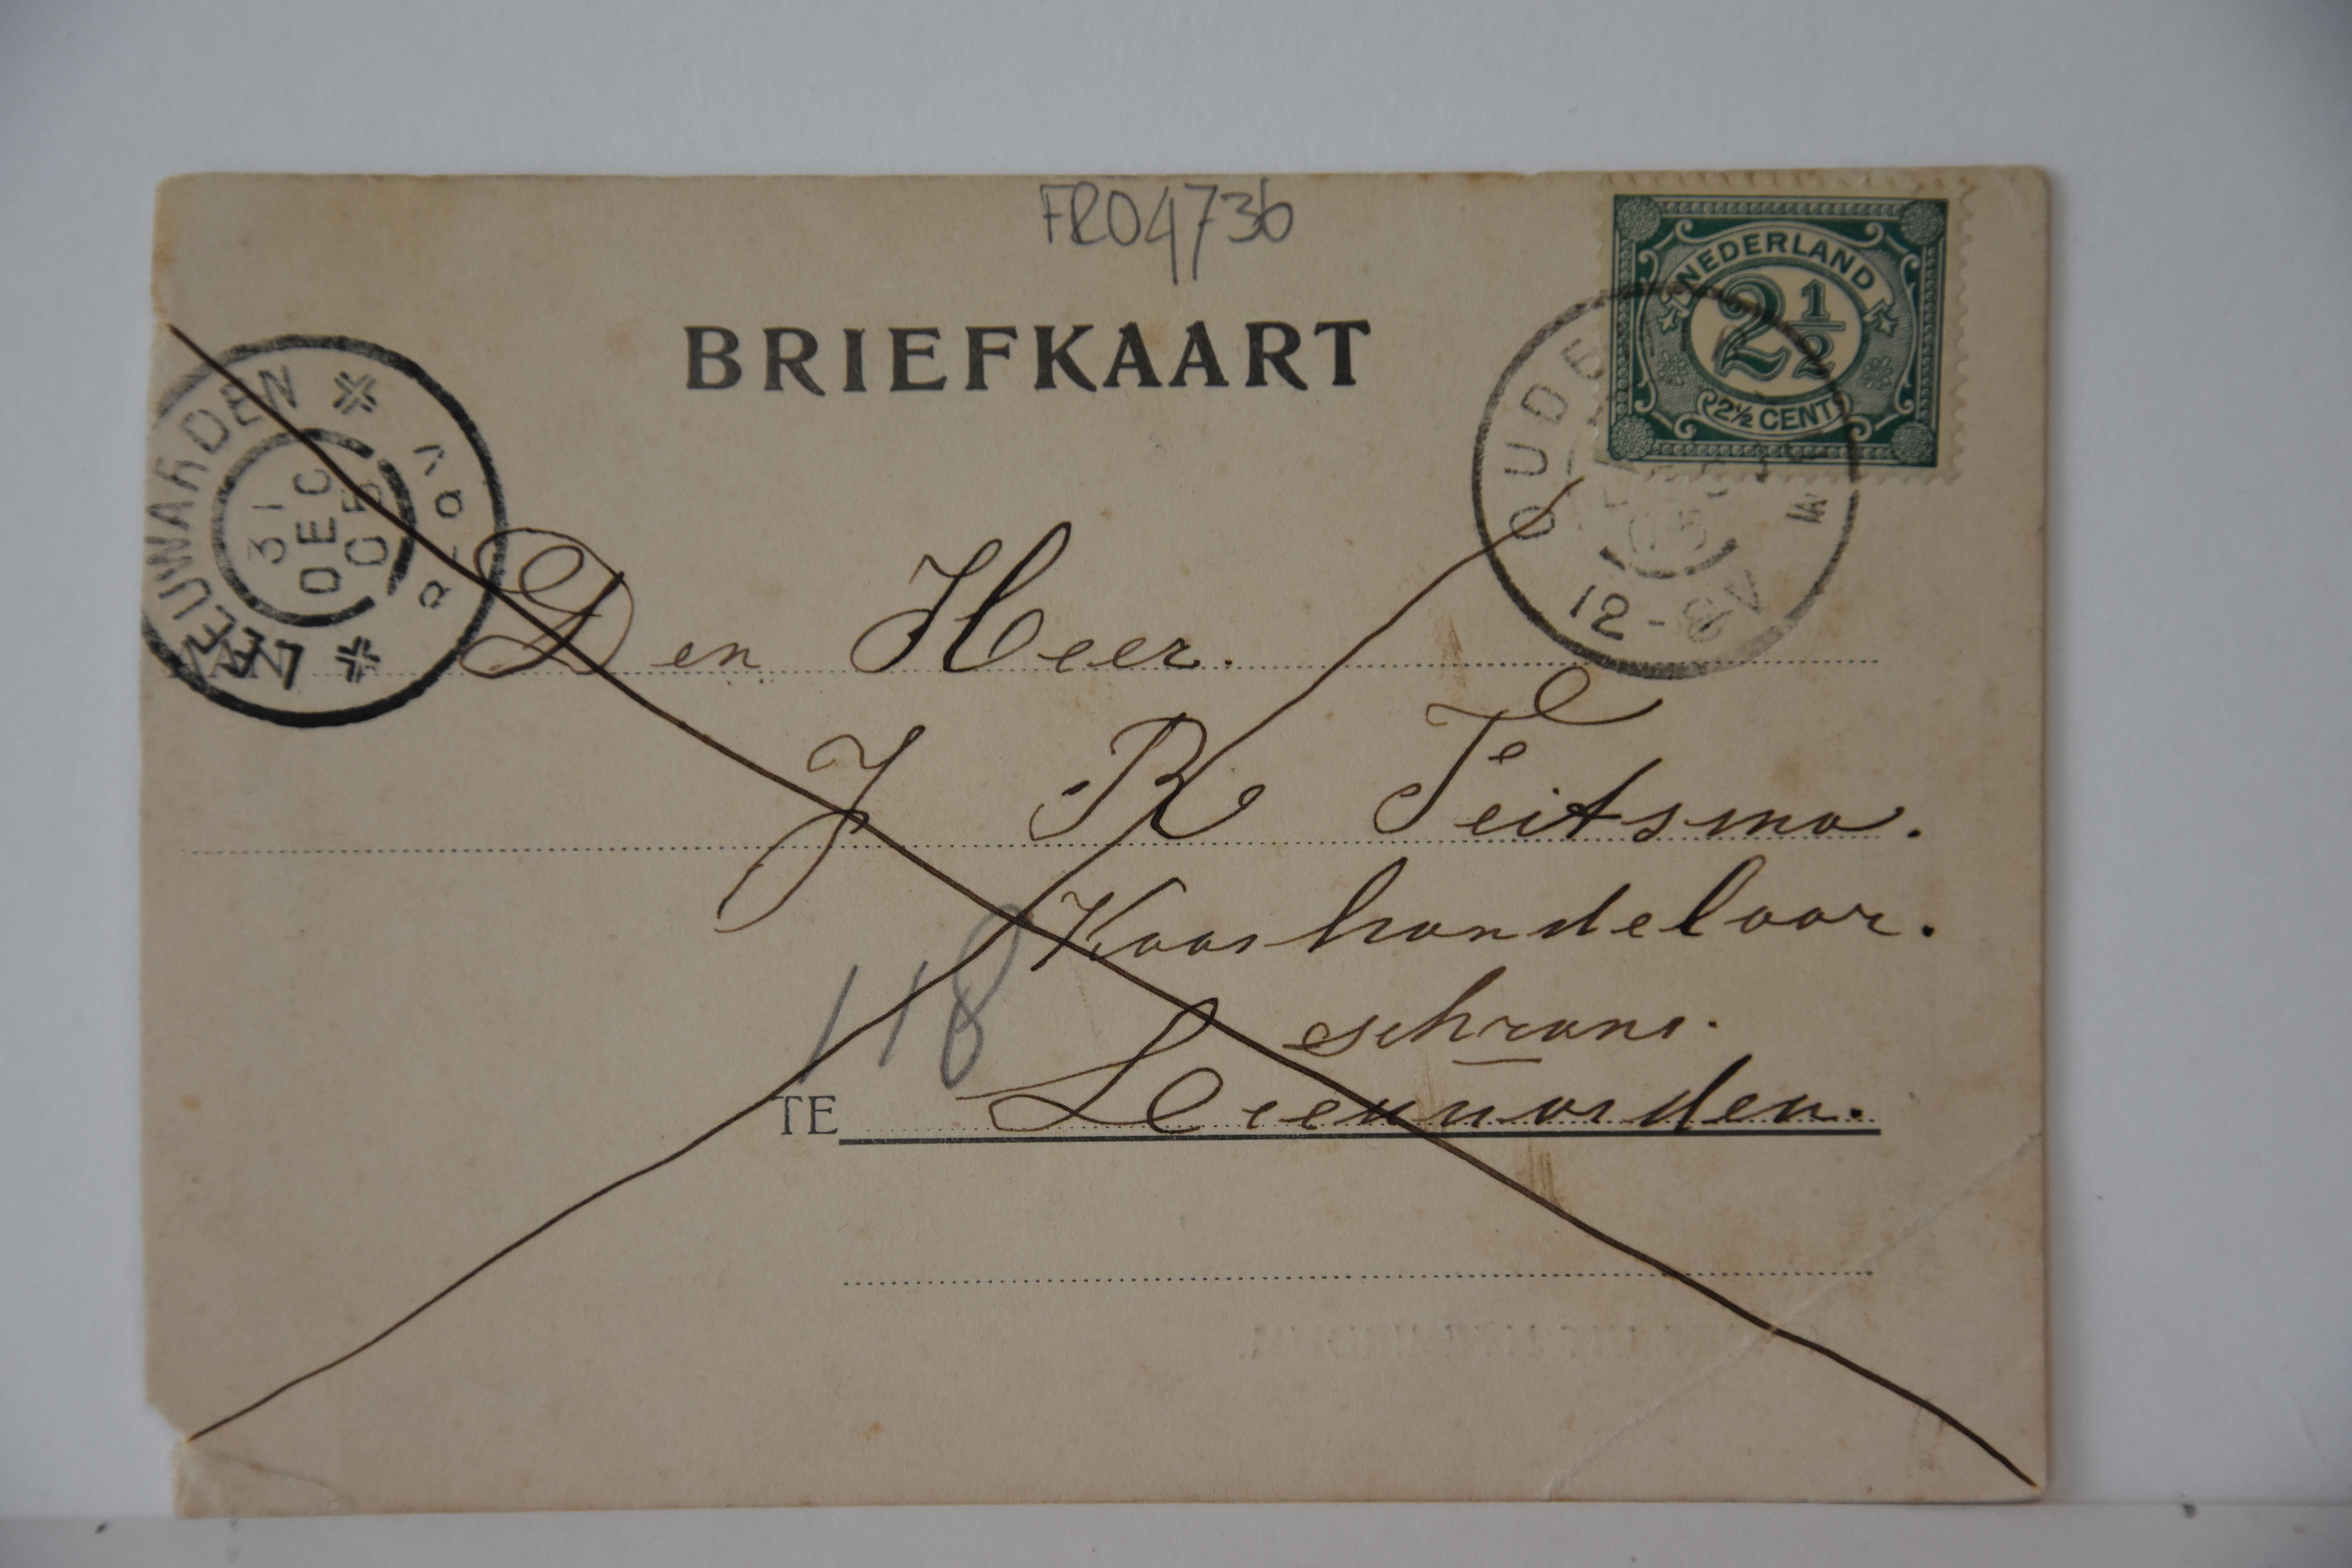 FR04736
BRIEFKAART
NEDERLAND
2 1/2
2½ CENT
LEEUWARDEN
31
DEC
05
OUDE
05
12-8V
Den Heer.
J R Feitsma.
Kaashandelaar.
schrans.
118
TE Leeuwarden.